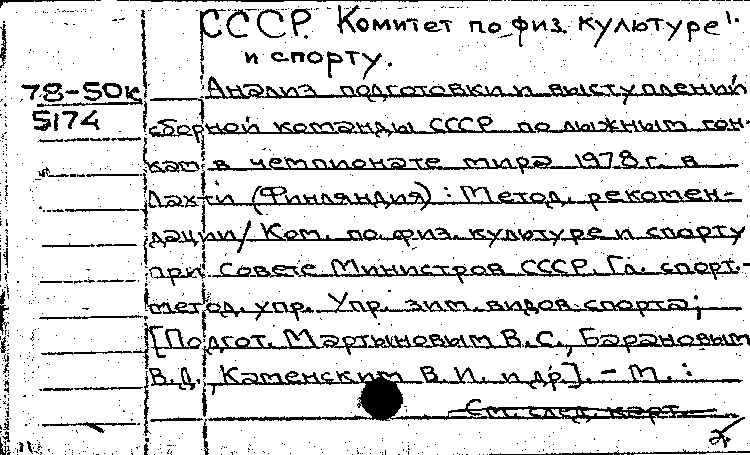 СССР. Комитет по физ. культуре
и спорту.
78-50к Анализ подготовки и выступлений
5174 сборной команды СССР по лыжным гон-
кам в чемпионате мира 1978 г. в
Лахти (Финляндия): Метод. рекомен-
дации/ Ком. по физ. культуре и спорту
при Совете Министров СССР. Гл. спорт.-
метод. упр. Упр. зим. видов спорта;
[Подгот. Мартыновым В.С., Барановым
В.Д., Каменским В.И. и др]. - М.:
См. след. карт.